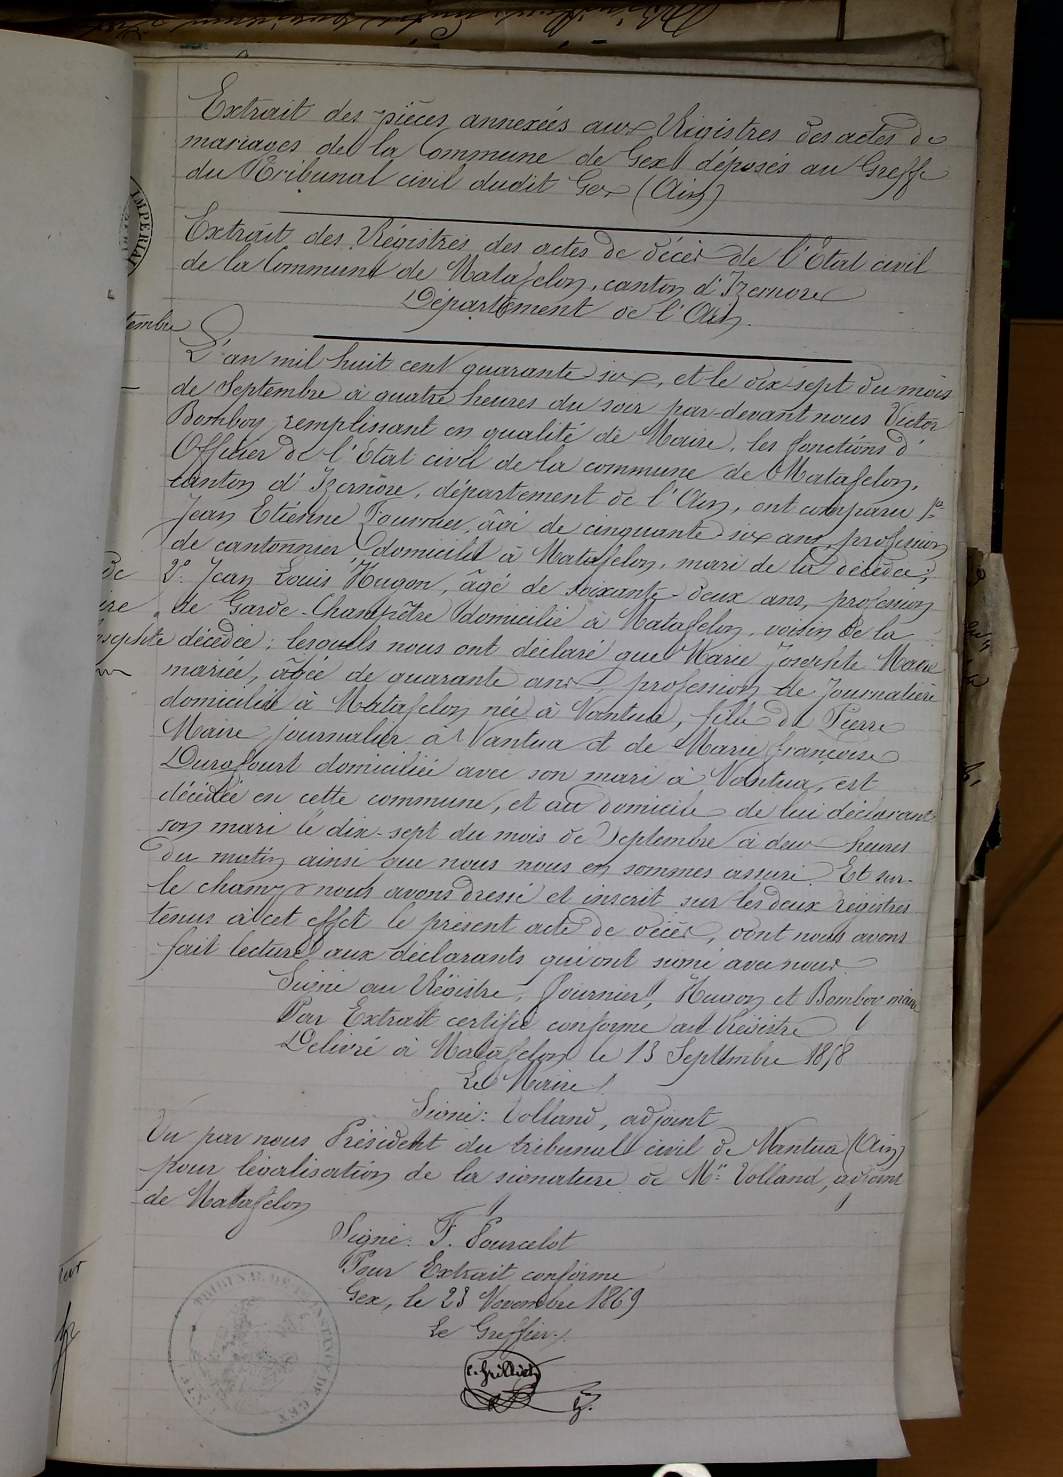 Extrait des pièces annexées aux Régistres des actes de
mariages de la Commune de Gex, déposés au Greffe
du Tribunal civil dudit Gex (Ain)
Extrait des Régistres des actes de décès de l'Etat civil
de la Commune de Matafelon, canton d'Izernore
Département de l'Ain.
L'an mil huit cent quarante six, et le dix sept du mois
de Septembre à quatre heures du soir par-devant nous Victor
Bomboy remplissant en qualité de Maire, les fonctions d'
Officier de l'Etat civil de la commune de Matafelon,
canton d'Izernore, département de l'Ain, ont comparu 1°
Jean Etienne Fournier, âgé de cinquante six ans, profession
de cantonnier domicilié à Matafelon, mari de la décédée;
2° Jean Louis Hugon, âgé de soixante-deux ans, profession
de Garde-Champêtre domicilié à Matafelon, voisin de la
décédée; lesquels nous ont déclaré que Marie Josephte Maire
mariée, âgée de quarante ans, profession de Journalière
domiciliée à Matafelon née à Nantua, fille de Pierre
Maire journalier à Nantua et de Marie françoise
Durafourt domiciliée avec son mari à Nantua, est
décédée en cette commune, et au domicile de lui déclarant
son mari le dix-sept du mois de Septembre à deux heures
du matin ainsi que nous nous en sommes assuré. Et sur-
le champ nous avons dressé et inscrit sur les deux registres
tenus à cet effet le présent acte de décès, dont nous avons
fait lecture aux déclarants qui ont signé avec nous.
Signé au Régistre: fournier, Hugon et Bomboy maire
Par Extrait certifié conforme au Régistre
Délivré à Matafelon le 13 Septembre 1858
Le Maire
Signé: Volland, adjoint
Vu par nous Président du tribunal civil de Nantua (Ain)
pour légalisation de la signature de Mr. Volland, adjoint
de Matafelon
Signé: F. Pourcelot
Pour Extrait conforme
Gex, le 23 Novembre 1869
Le Greffier.